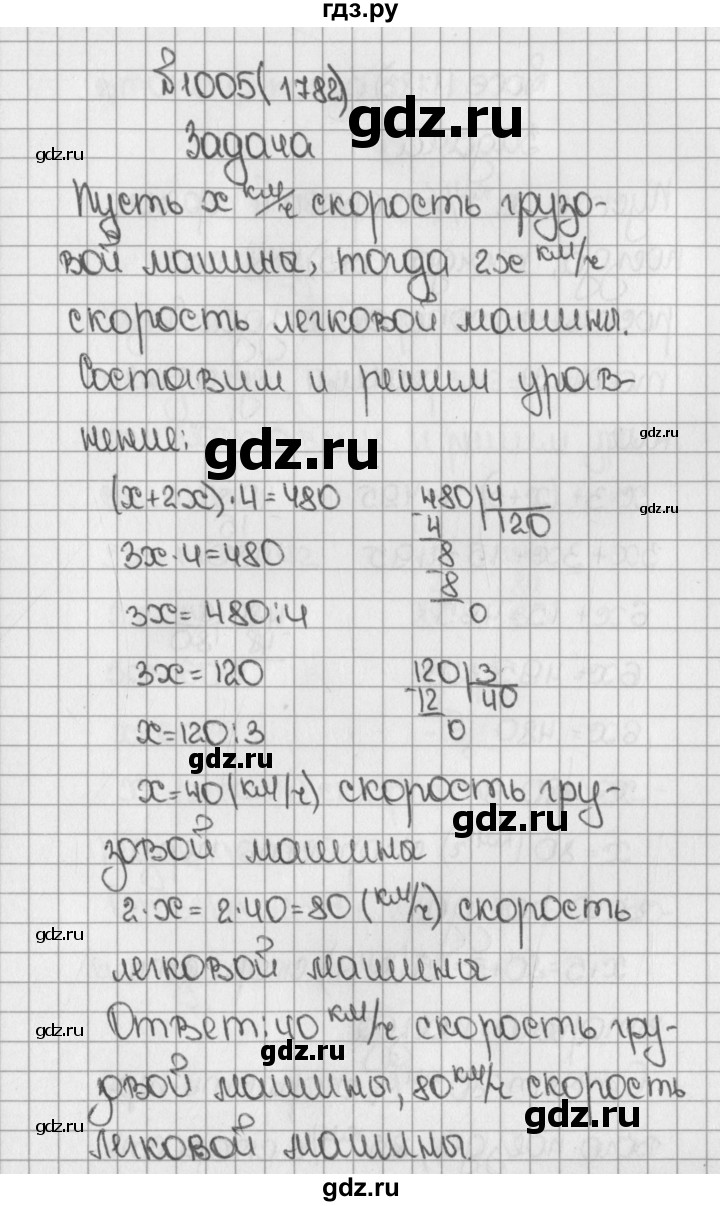 гдз.ру
№1005(1782)
gdz.ru
gdz.ru
Задача
Пусть x км/ч скорость грузо-
вой машины, тогда 2x км/ч
скорость легковой машины.
Составим и решим урав-
gdz.ru
нение:
gdz.ru
(x+2x)·4=480
480 4
gdz.ru
4 120
3x·4=480
8
8
3x=480:4
0
3x=120
120 3
12 40
x=120:3
0
gdz.ru
x=40(км/ч) скорость гру-
gdz.ru
зовой машины
2·x=2·40=80(км/ч) скорость
gdz.ru
легковой машины
Ответ:40 км/ч скорость гру-
gdz.ru
gdz.ru
зовой машины, 80 км/ч скорость
gdz.ru
gdz.ru
легковой машины.
gdz.ru